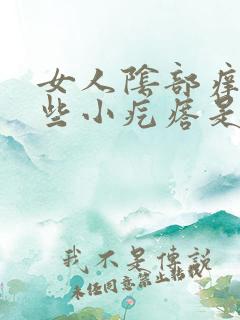 女人陰部痒
些小疙瘩是
我不是傳説
未经同意禁止转载